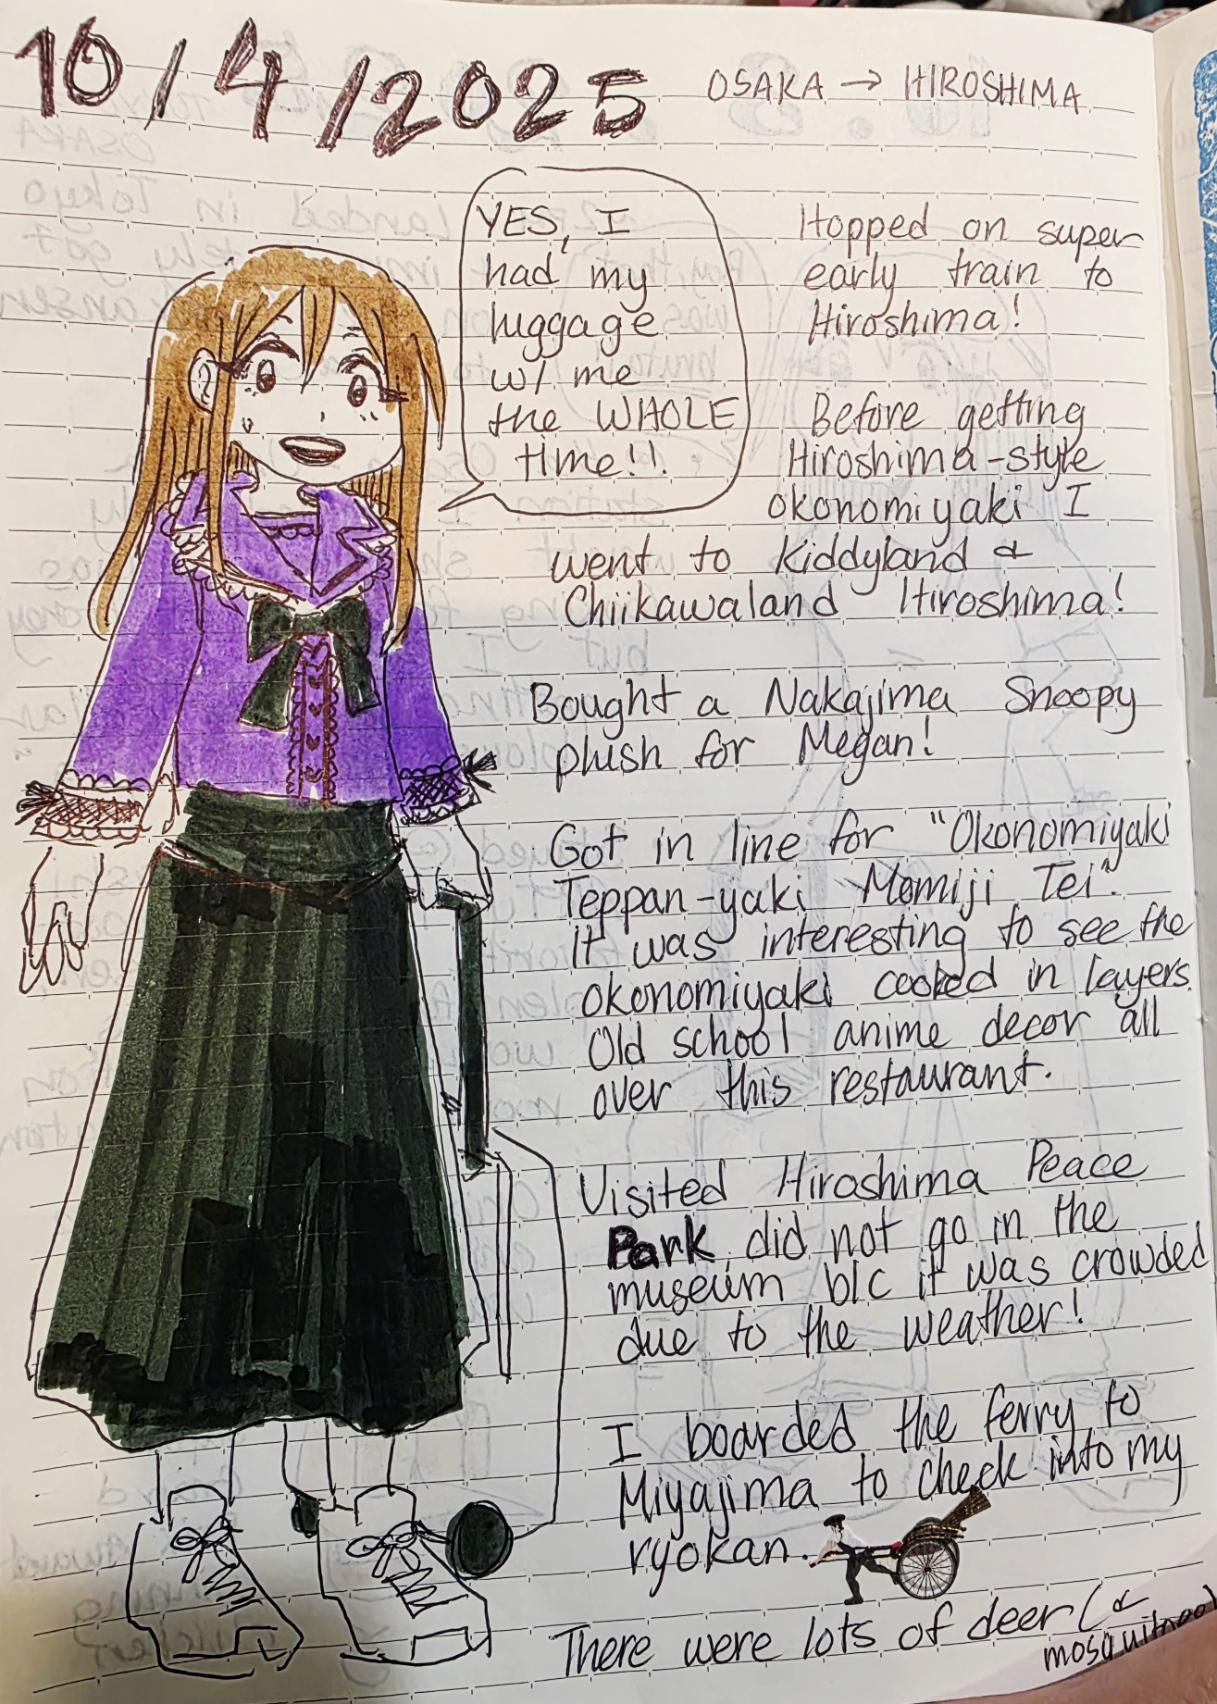 10/4/2025
OSAKA → HIROSHIMA
YES, I
had my
luggage
w/ me
the WHOLE
time!!
Hopped on super
early train to
Hiroshima!
Before getting
Hiroshima-style
okonomiyaki I
went to Kiddyland &
Chiikawaland Hiroshima!
Bought a Nakajima Snoopy
plush for Megan!
Got in line for "Okonomiyaki
Teppan-yaki Momiji Tei".
It was interesting to see the
okonomiyaki cooked in layers.
Old school anime decor all
over this restaurant.
Visited Hiroshima Peace
Park did not go in the
museum b/c it was crowded
due to the weather!
I boarded the ferry to
Miyajima to check into my
ryokan.
There were lots of deer (&